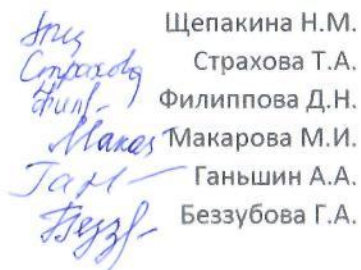 Щепакина Н.М.
Страхова Страхова Т.А.
Фил Филиппова Д.Н.
Макар Макарова М.И.
Ган Ганьшин А.А.
Безз Беззубова Г.А.